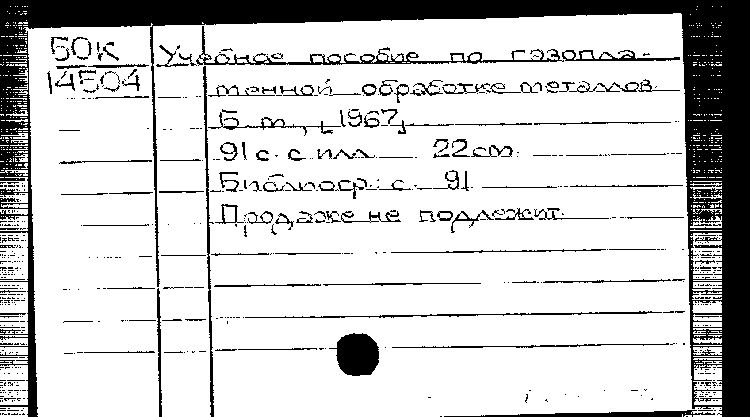 50К
14504
Учебное пособие по газопла-
менной обработке металлов.
Б. м., [1967]
91 с. с илл. 22 см.
Библиогр.: с. 91
Продаже не подлежит.